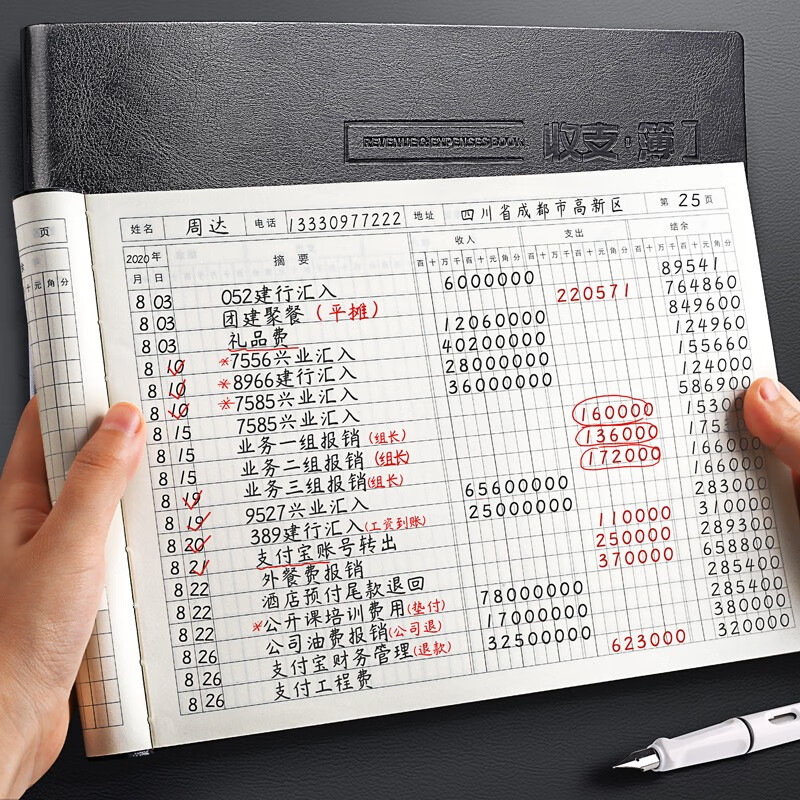 REVENUE&EXPENSES BOOK 收支·簿
页
十元角分
姓名 周达 电话 13330977222 地址 四川省成都市高新区 第25页
2020年 摘要 收入 支出 结余
月 日 百十万千百十元角分 百十万千百十元角分 百十万千百十元角分
8 03 052建行汇入 6000000 89541
8 03 团建聚餐(平摊) 220571 764860
8 03 礼品费 12060000 849600
8 10 *7556兴业汇入 40200000 124960
8 10 *8966建行汇入 28000000 155660
8 10 *7585兴业汇入 36000000 124000
8 15 7585兴业汇入 586900
8 15 业务一组报销(组长) 160000
8 15 业务二组报销(组长) 136000
8 19 业务三组报销(组长) 172000 166000
8 19 9527兴业汇入 65600000 166000
8 20 389建行汇入(工资到账) 25000000 283000
8 21 支付宝账号转出 110000 310000
8 22 外餐费报销 250000 289300
8 22 酒店预付尾款退回 370000 658800
8 22 *公开课培训费用(垫付) 78000000 285400
8 26 公司油费报销(公司退) 17000000 285400
8 26 支付宝财务管理(退款) 32500000 380000
8 26 支付工程费 623000 320000